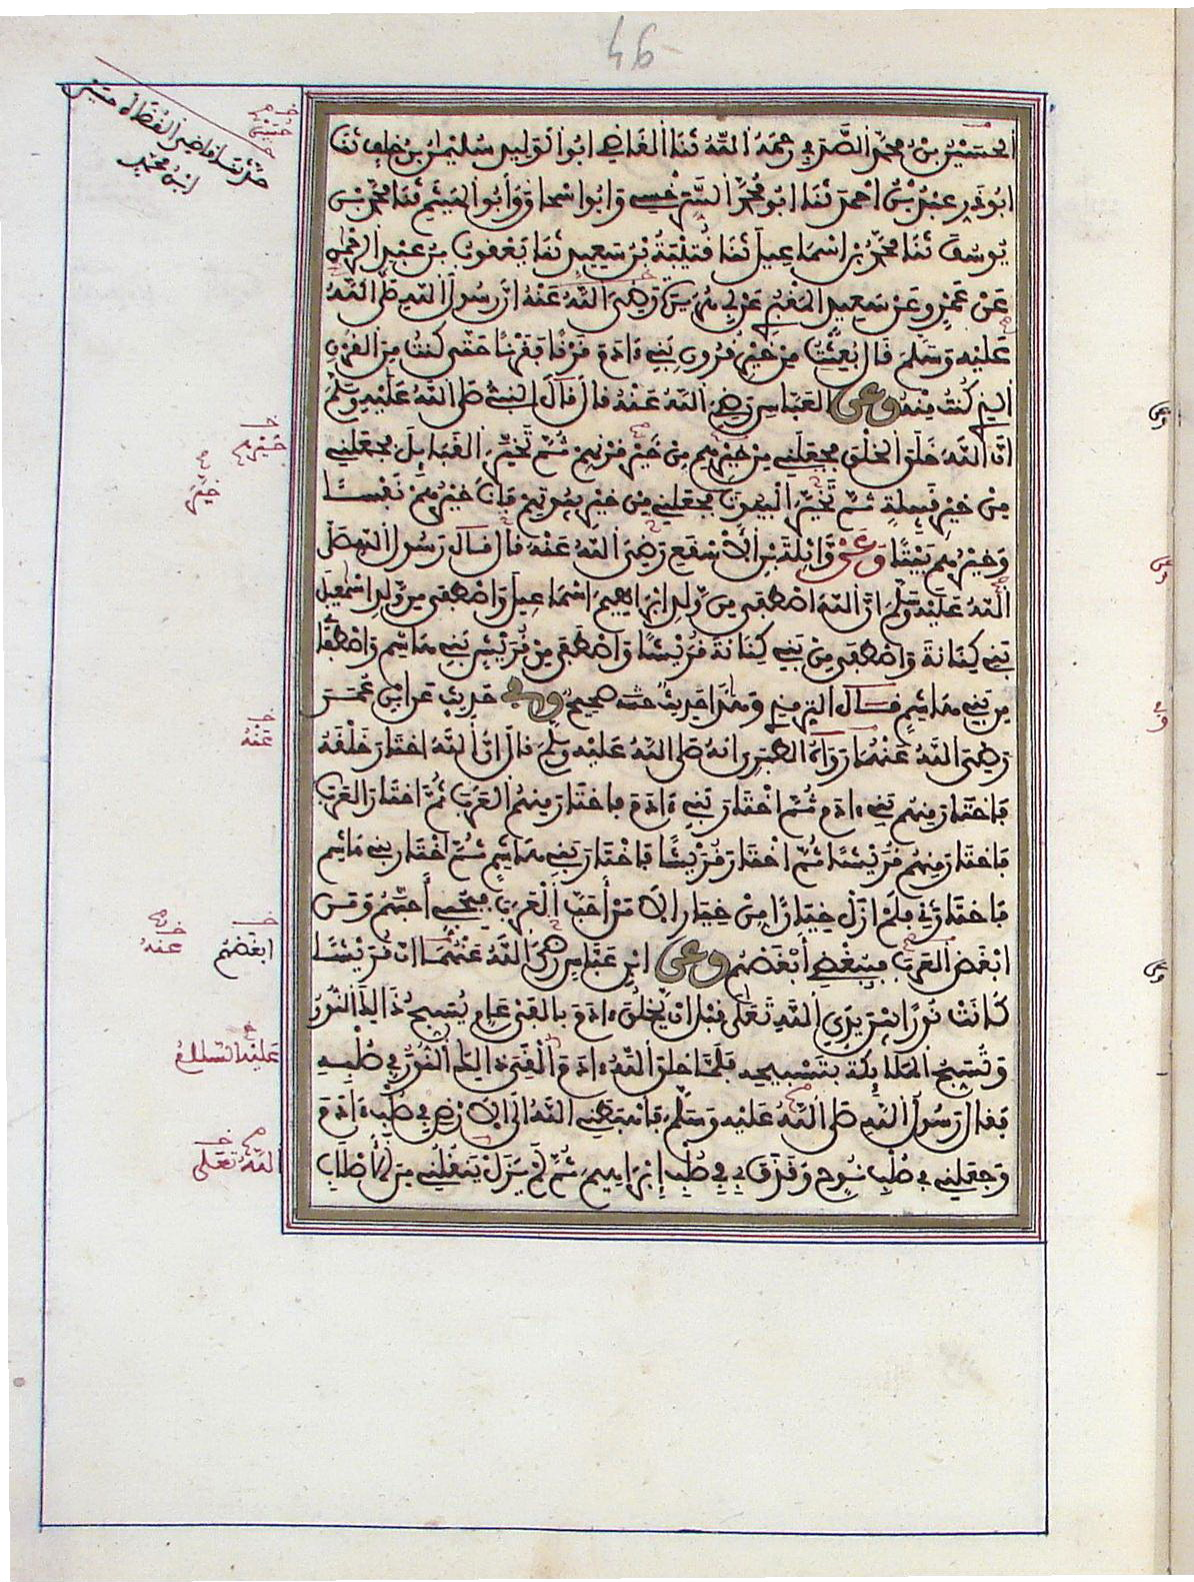 46
الحسين بن محمد الصدفي رحمه الله ثنا القاضي ابو الوليد سليمان بن خلف ثنا
ابو ذر عبد بن احمد ثنا ابو محمد السرخسي وابو اسحاق وأبو الهيثم ثنا محمد بن
يوسف ثنا محمد بن اسماعيل ثنا قتيبة بن سعيد ثنا يعقوب بن عبد الرحمن
عن عمرو عن سعيد المقبري عن ابي هريرة رضي الله عنه ان رسول الله صلى الله
عليه وسلم قال بعثت من خير قرون بني ءادم قرنا فقرنا حتى كنت من القرن
الذي كنت منه وعن العباس رضي الله عنه قال قال النبي صلى الله عليه وسلم
ان الله خلق الخلق فجعلني من خيرهم من خير قرنهم ثم تخير القبايل فجعلني
من خير قبيلة ثم تخير البيوت فجعلني من خير بيوتهم فانا خيرهم نفسا
وخيرهم بيتا وعن واثلة بن الاسقع رضي الله عنه قال قال رسول الله صلى
الله عليه وسلم ان الله اصطفى من ولد ابراهيم اسماعيل واصطفى من ولد اسمعيل
بني كنانة واصطفى من بني كنانة قريشا واصطفى من قريش بني هاشم واصطفا
من بني هاشم قال الترمذي وهذا حديث حسن صحيح وفي حديث عن ابن عمر
رضي الله عنهما رواه الطبري انه صلى الله عليه وسلم قال ان الله اختار خلقه
فاختار منهم بني ءادم ثم اختار بني ءادم فاختار منهم العرب ثم اختار العرب
فاختار منهم قريشا ثم اختار قريشا فاختار بني هاشم ثم اختار بني هاشم
فاختارني فلم ازل خيارا من خيار الا من أحب العرب فبحبي أحبهم ومن
ابغض العرب فببغضي أبغضهم وعن ابن عباس رضي الله عنهما ان قريشا
كانت نورا بين يدي الله تعلى قبل ان يخلق ءادم بالفي عام يسبح ذلك النور
وتسبح الملايكة بتسبيحه فلما خلق الله ءادم القى ذلك النور في صلبه
فقال رسول الله صلى الله عليه وسلم فاهبطني الله الى الارض في صلب ءادم
وجعلني في صلب نوح وقذف بي في صلب إبراهيم ثم لم يزل ينقلني من الأصلاب
حدثنا قاضي القضاة حسين
ابن محمد
خيرهم
خير
عنه
ابغضهم
عنه
عليه السلام
الله تعلى